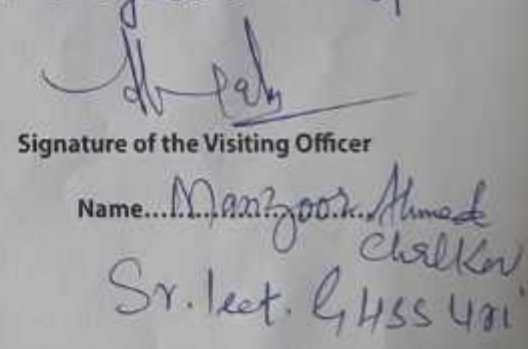 Signature of the Visiting Officer
Name...Manzoor Ahmed
Sr. lect. GHSS Uri